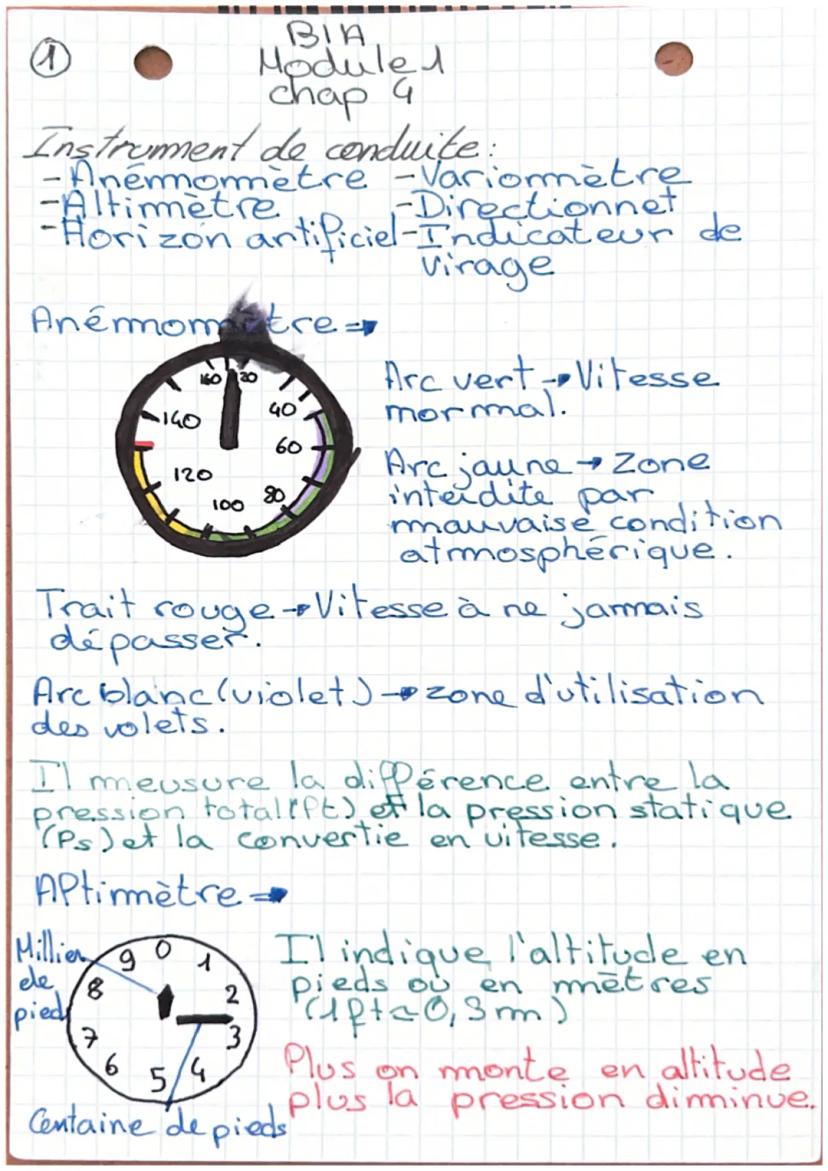 1
BIA
Module 1
chap 4
Instrument de conduite :
- Anémomètre - Variomètre
- Altimètre - Directionnel
- Horizon artificiel - Indicateur de
virage
Anémomètre →
160 20
140 40
60
120 80
100
Arc vert → Vitesse
normal.
Arc jaune → Zone
interdite par
mauvaise condition
atmosphérique.
Trait rouge → Vitesse à ne jamais
dépasser.
Arc blanc (violet) → zone d'utilisation
des volets.
Il meusure la différence entre la
pression total (Pt) et la pression statique
(Ps) et la convertie en vitesse.
Altimètre →
Millier
de
pied
0
9 1
8 2
7 3
6 5 4
Centaine de pieds
Il indique l'altitude en
pieds ou en mètres
(1ft ≈ 0,3 m)
Plus on monte en altitude
plus la pression diminue.